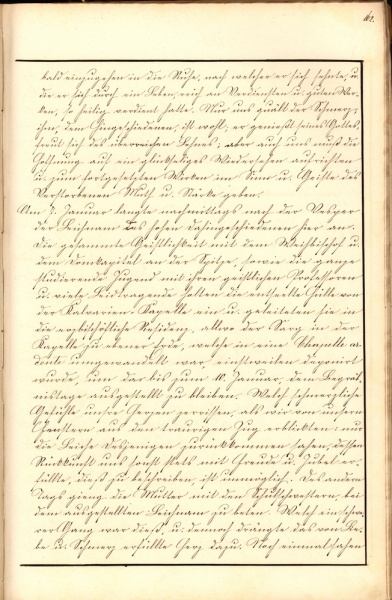 61.
bald einzugehen in die Ruhe, nach welcher er sich sehnte, u.
die er sich durch ein Leben, reich an Verdiensten u. guten Wer-
ken, so heilig verdient hatte. Nur uns quält der Schmerz;
ihm, dem Hingeschiedenen, ist wohl; er genießt seines Gottes,
freut sich des überreichen Lohnes; aber auch uns muß die
Hoffnung auf ein glückseliges Wiedersehen aufrichten
u. zum fortgesetzten Wirken im Sinn u. Geiste des
Verstorbenen Muth u. Stärke geben.
Am 7. Januar langte nachmittags nach der Vesper
der Leichnam des hohen Dahingeschiedenen hier an.
Die gesammte Geistlichkeit mit dem Weihbischof u.
dem Domkapitel an der Spitze, sowie die ganze
studierende Jugend mit ihren geistlichen Professoren
u. viele Leidtragende holten die entseelte Hülle von
der Kalvarien-Kapelle ein u. geleiteten sie in
die erzbischöfliche Residenz, allwo der Sarg in der
Kapelle zu ebener Erde, welche in eine Chapelle ar-
dente umgewandelt war, einstweilen deponirt
wurde, um das bis zum 10. Januar, dem Begräb-
nistage ausgestellt zu bleiben. Welch schmerzliche
Gefühle unsre Herzen zerrissen, als wir von unsern
Fenstern aus den traurigen Zug erblickten u. nur
die Leiche Desjenigen zurückkommen sahen, dessen
Rückkunft uns sonst stets mit Freude u. Jubel er-
füllte, dieß zu beschreiben, ist unmöglich. Des andern
Tags gieng die Mutter mit den Schulschwestern, bei
dem ausgestellten Leichnam zu beten. Welch ein schwe-
rer Gang war dieß, u. dennoch drängte das von Lie-
be u. Schmerz erfüllte Herz dazu. Noch einmal sahen